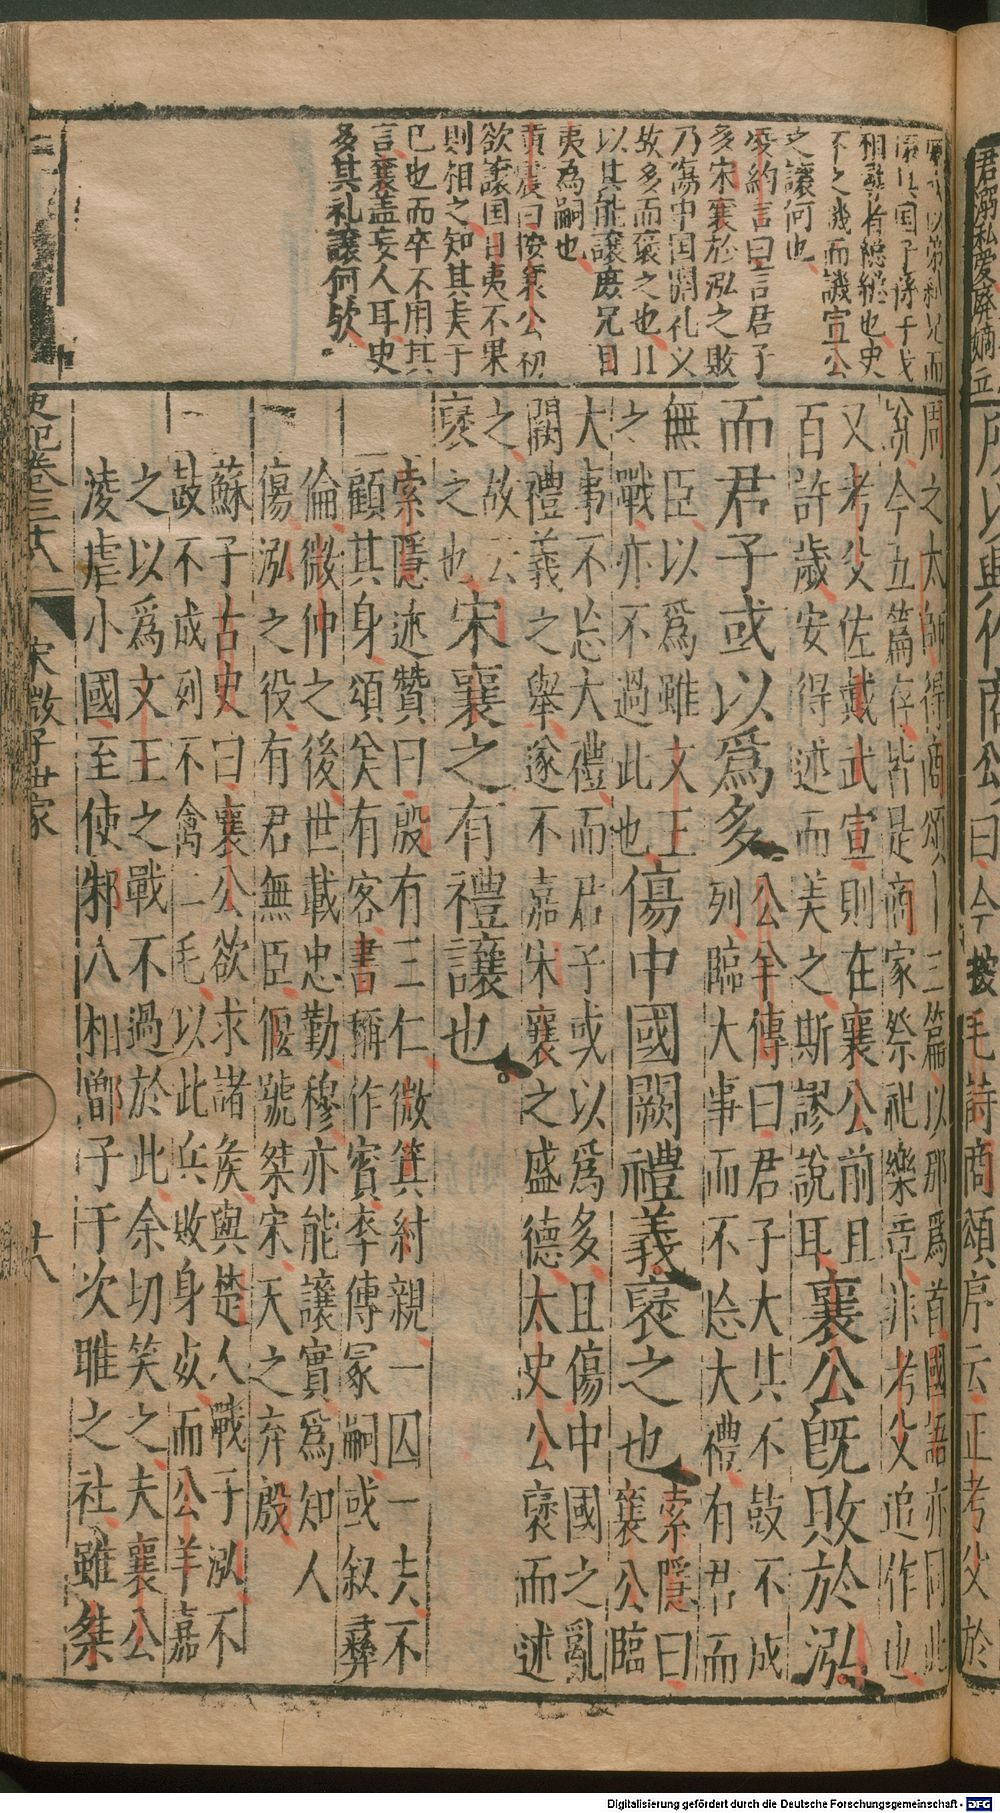 君溺私愛廢嫡立
所以興作商公曰今按毛詩商頌序云正考父於
以弟代兄而
相尋者總總也史
不之譏而譏宣公
之讓何也
凌約言曰言君子
多宋襄於泓之敗
乃傷中国闕礼义
故多而褒之也且
以其能讓庶兄目
夷為嗣也
黄震曰按襄公初
欲讓国目夷不果
則相之知其夫于
已也而卒不用其
言襄蓋妄人耳史
多其礼讓何欤
周之太師得商頌十二篇以那爲首國語亦同此
說今五篇存皆是商家祭祀樂章非考父追作也
又考父佐戴武宣則在襄公前且
百許歲安得述而美之斯謬說耳
襄公旣敗於泓
而君子或以爲多
公羊傳曰君子大其不鼓不成
列臨大事而不忘大禮有君而
無臣以爲雖文王
之戰亦不過此也
傷中國闕禮義褒之也
索隱曰
襄公臨
大事不忘大禮而君子或以爲多且傷中國之亂
闕禮義之舉遂不嘉宋襄之盛德太史公褒而述
之故云
褒之也
宋襄之有禮讓也
索隱述贊曰殷有三仁微箕紂親一囚一去不
顧其身頌矦有客書稱作賓卒傳冢嗣或叙彞
倫微仲之後世載忠勤穆亦能讓實爲知人
傷泓之役有君無臣偃號桀宋天之弃殷
蘇子古史曰襄公欲求諸矦與楚人戰于泓不
鼓不成列不禽二毛以此兵敗身死而公羊嘉
之以爲文王之戰不過於此余切笑之夫襄公
淩虐小國至使邾人相鄫子于次睢之社雖桀
史記卷三十八
宋微子世家
廿八
Digitalisierung gefördert durch die Deutsche Forschungsgemeinschaft - DFG